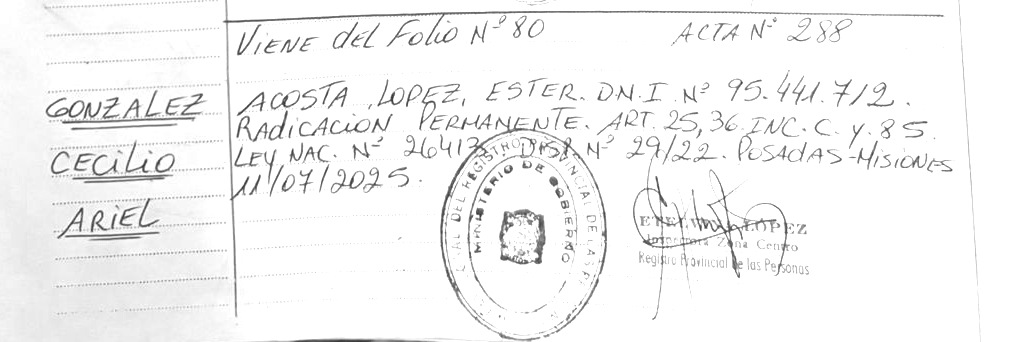 VIENE del Folio Nº 80
ACTA Nº 288
GONZALEZ
CECILIO
ARIEL
ACOSTA, LOPEZ, ESTER. D.N.I. Nº 95.441.712.
RAdICACION PERMANENTE. ART. 25, 36. INC. C. y. 85.
LEY NAC. Nº 26413. DISP. Nº 29/22. POSADAS-MISIONES
11/07/2025.
DEL REGISTRO PROVINCIAL DE LAS
MINISTERIO DE GOBIERNO
LOPEZ
Inspectora Zona Centro
Registro Provincial de las Personas